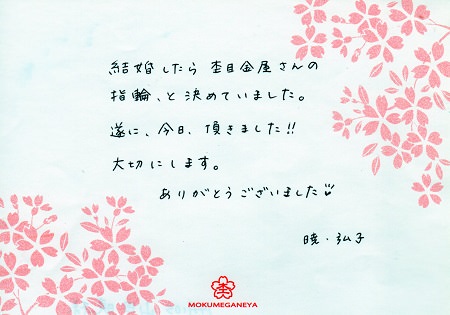 結婚したら 杢目金屋さんの
指輪、と決めていました。
遂に、今日、頂きました!!
大切にします。
ありがとうございました
暁・弘子
杢
MOKUMEGANEYA